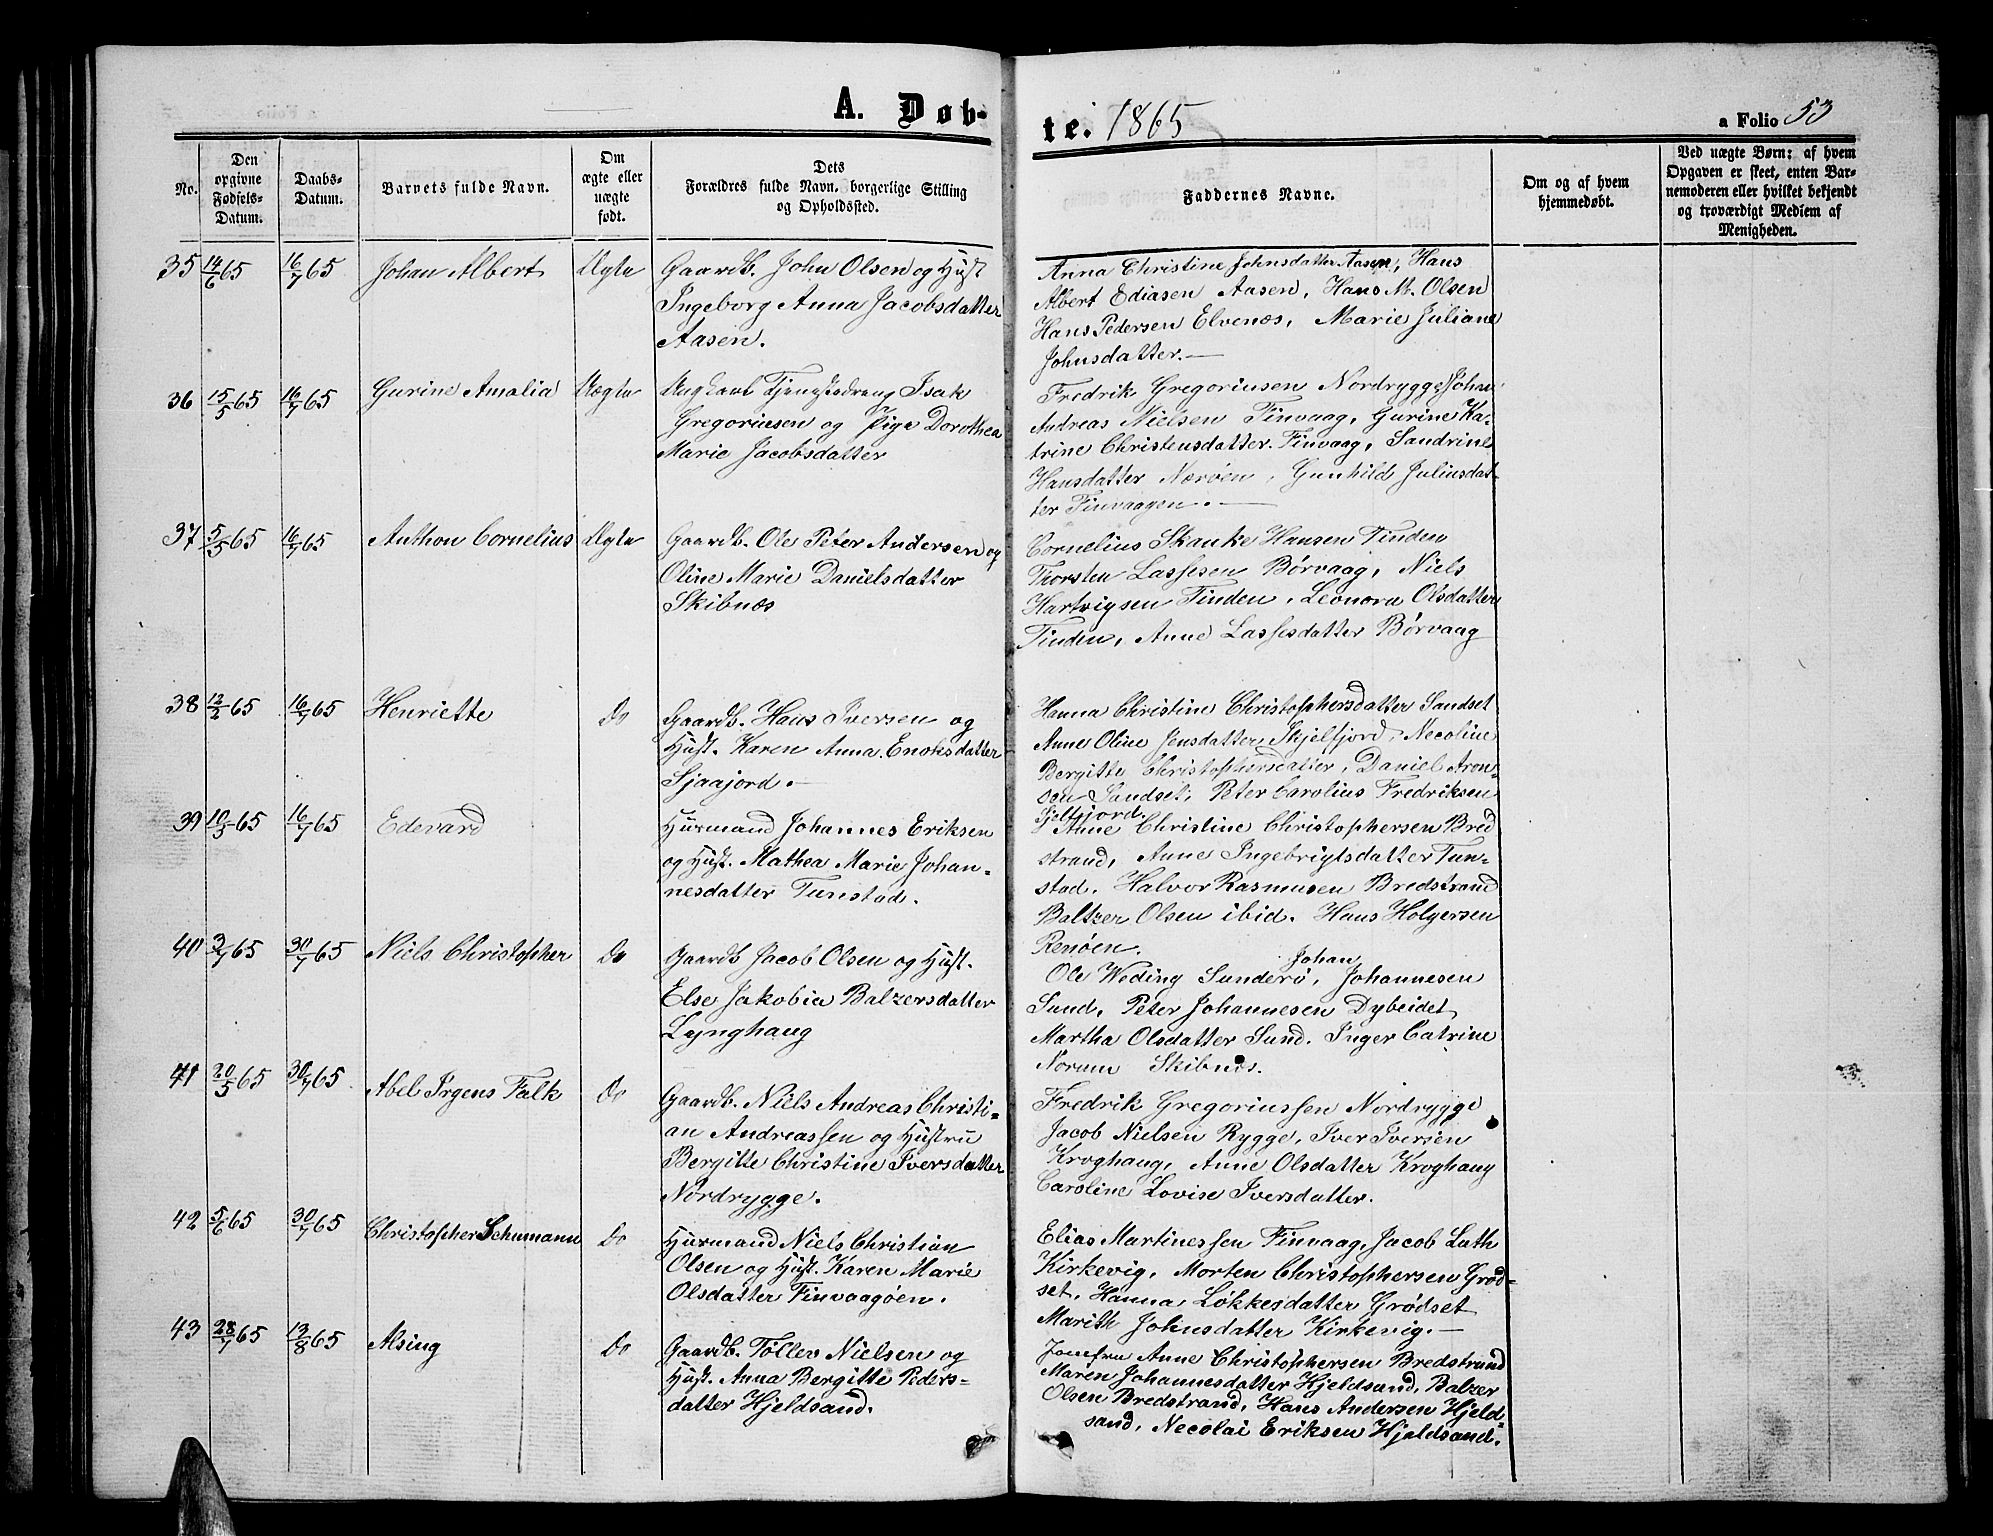 A. Døb-
te. 1865
a Folio 53
No.
Den opgivne Fødsels-Datum.
Daabs-Datum.
Barnets fulde Navn.
Om ægte eller uægte født.
Dets
Forældres fulde Navn, borgerlige Stilling
og Opholdssted.
Faddernes Navne.
Om og af hvem
hjemmedøbt.
Ved uægte Børn; af hvem
Opgaven er skeet, enten Bar-
nemoderen eller hvilket bekjendt
og troværdigt Medlem af
Menigheden.
35 14/6 65 16/7 65 Johan Albert Ægte
Gaardb. John Olsen og Hust
Ingeborg Anna Jacobsdatter
Aasen.
Anna Christine Johnsdatter Aasen, Hans
Albert Ediasen Aasen, Hans M. Olsen
Hans Pedersen Elvenæs, Marie Juliane
Johnsdatter.—
36 15/5 65 16/7 65 Gurine Amalia Uægte
Ungkarl Tjenestedreng Isak
Gregoriusen og Pige Dorothea
Marie Jacobsdatter
Fredrik Gregoriusen Nordrygge, Johan
Andreas Nielsen Finvaag, Gurine Ka-
trine Christensdatter Finvaag, Sandrine
Hansdatter Nærøen, Gunhild Juliusdat-
ter Finvaagen.—
37 5/5 65 16/7 65 Anthon Cornelius Ægte
Gaardb. Ole Peter Andersen og
Oline Marie Danielsdatter
Skibnæs
Cornelius Skanke Hansen Tinden
Thorsten Lassesen Børvaag, Niels
Hartvigsen Tinden, Leonora Olsdatter
Tinden, Anne Lassesdatter Børvaag
38 12/2 65 16/7 65 Henriette Do
Gaardb. Hans Iversen og
Hust. Karen Anna Enoksdatter
Sjaajord.—
Hanna Christine Christophersdatter Sandset
Anne Oline Jensdatter Skjelfjord, Necoline
Bergitte Christophersdatter, Daniel Aron-
sen Sandset, Peter Carolius Fredriksen
Sjelfjord.
39 10/3 65 16/7 65 Edevard
Husmand Johannes Eriksen
og Hust. Mathea Marie Johan-
nesdatter Tunstad.
Anne Christine Christophersen Bred
strand, Anne Ingebrigtsdatter Tun-
stad. Halvor Rasmusen Bredstrand
Baltzer Olsen ibid. Hans Holgersen
Renøen.
40 3/7 65 30/7 65 Niels Christopher Do
Gaardb Jacob Olsen og Hust.
Else Jakobia Balzersdatter
Lynghaug
Johan
Ole Weding Sunderö, Johannesen
Sund, Peter Johannesen Dybeidet
Martha Olsdatter Sund. Inger Catrine
Norum Skibnæs.
41 20/5 65 30/7 65 Abel Irgens Falk Do
Gaardb. Niels Andreas Christi-
an Andreassen og Hustru
Bergitte Christine Iversdatter
Nordrygge.
Fredrik Gregoriussen Nordrygge
Jacob Nielsen Rygge, Iver Iversen
Kroghaug, Anne Olsdatter Kroghaug
Caroline Lovise Iversdatter.
42 5/6 65 30/7 65 Christopher Schumann Do
Husmand Niels Christian
Olsen og Hust. Karen Marie
Olsdatter Finvaagøen.
Elias Martinessen Finvaag, Jacob Lath
Kirkevig, Morten Christophersen Grød-
set, Hanna Lökkesdatter Grødset
Marith Johnsdatter Kirkevig.—
43 28/7 65 13/8 65 Alsing Do
Gaardb. Töllev Nielsen og
Hust. Anna Bergitte Peders-
datter Hjeldsand.
Jomfru Anne Christophersen Bredstrand
Maren Johannesdatter Hjeldsand, Balzer
Olsen Bredstrand, Hans Andersen Hjeld-
sand, Necolai Eriksen Hjeldsand.